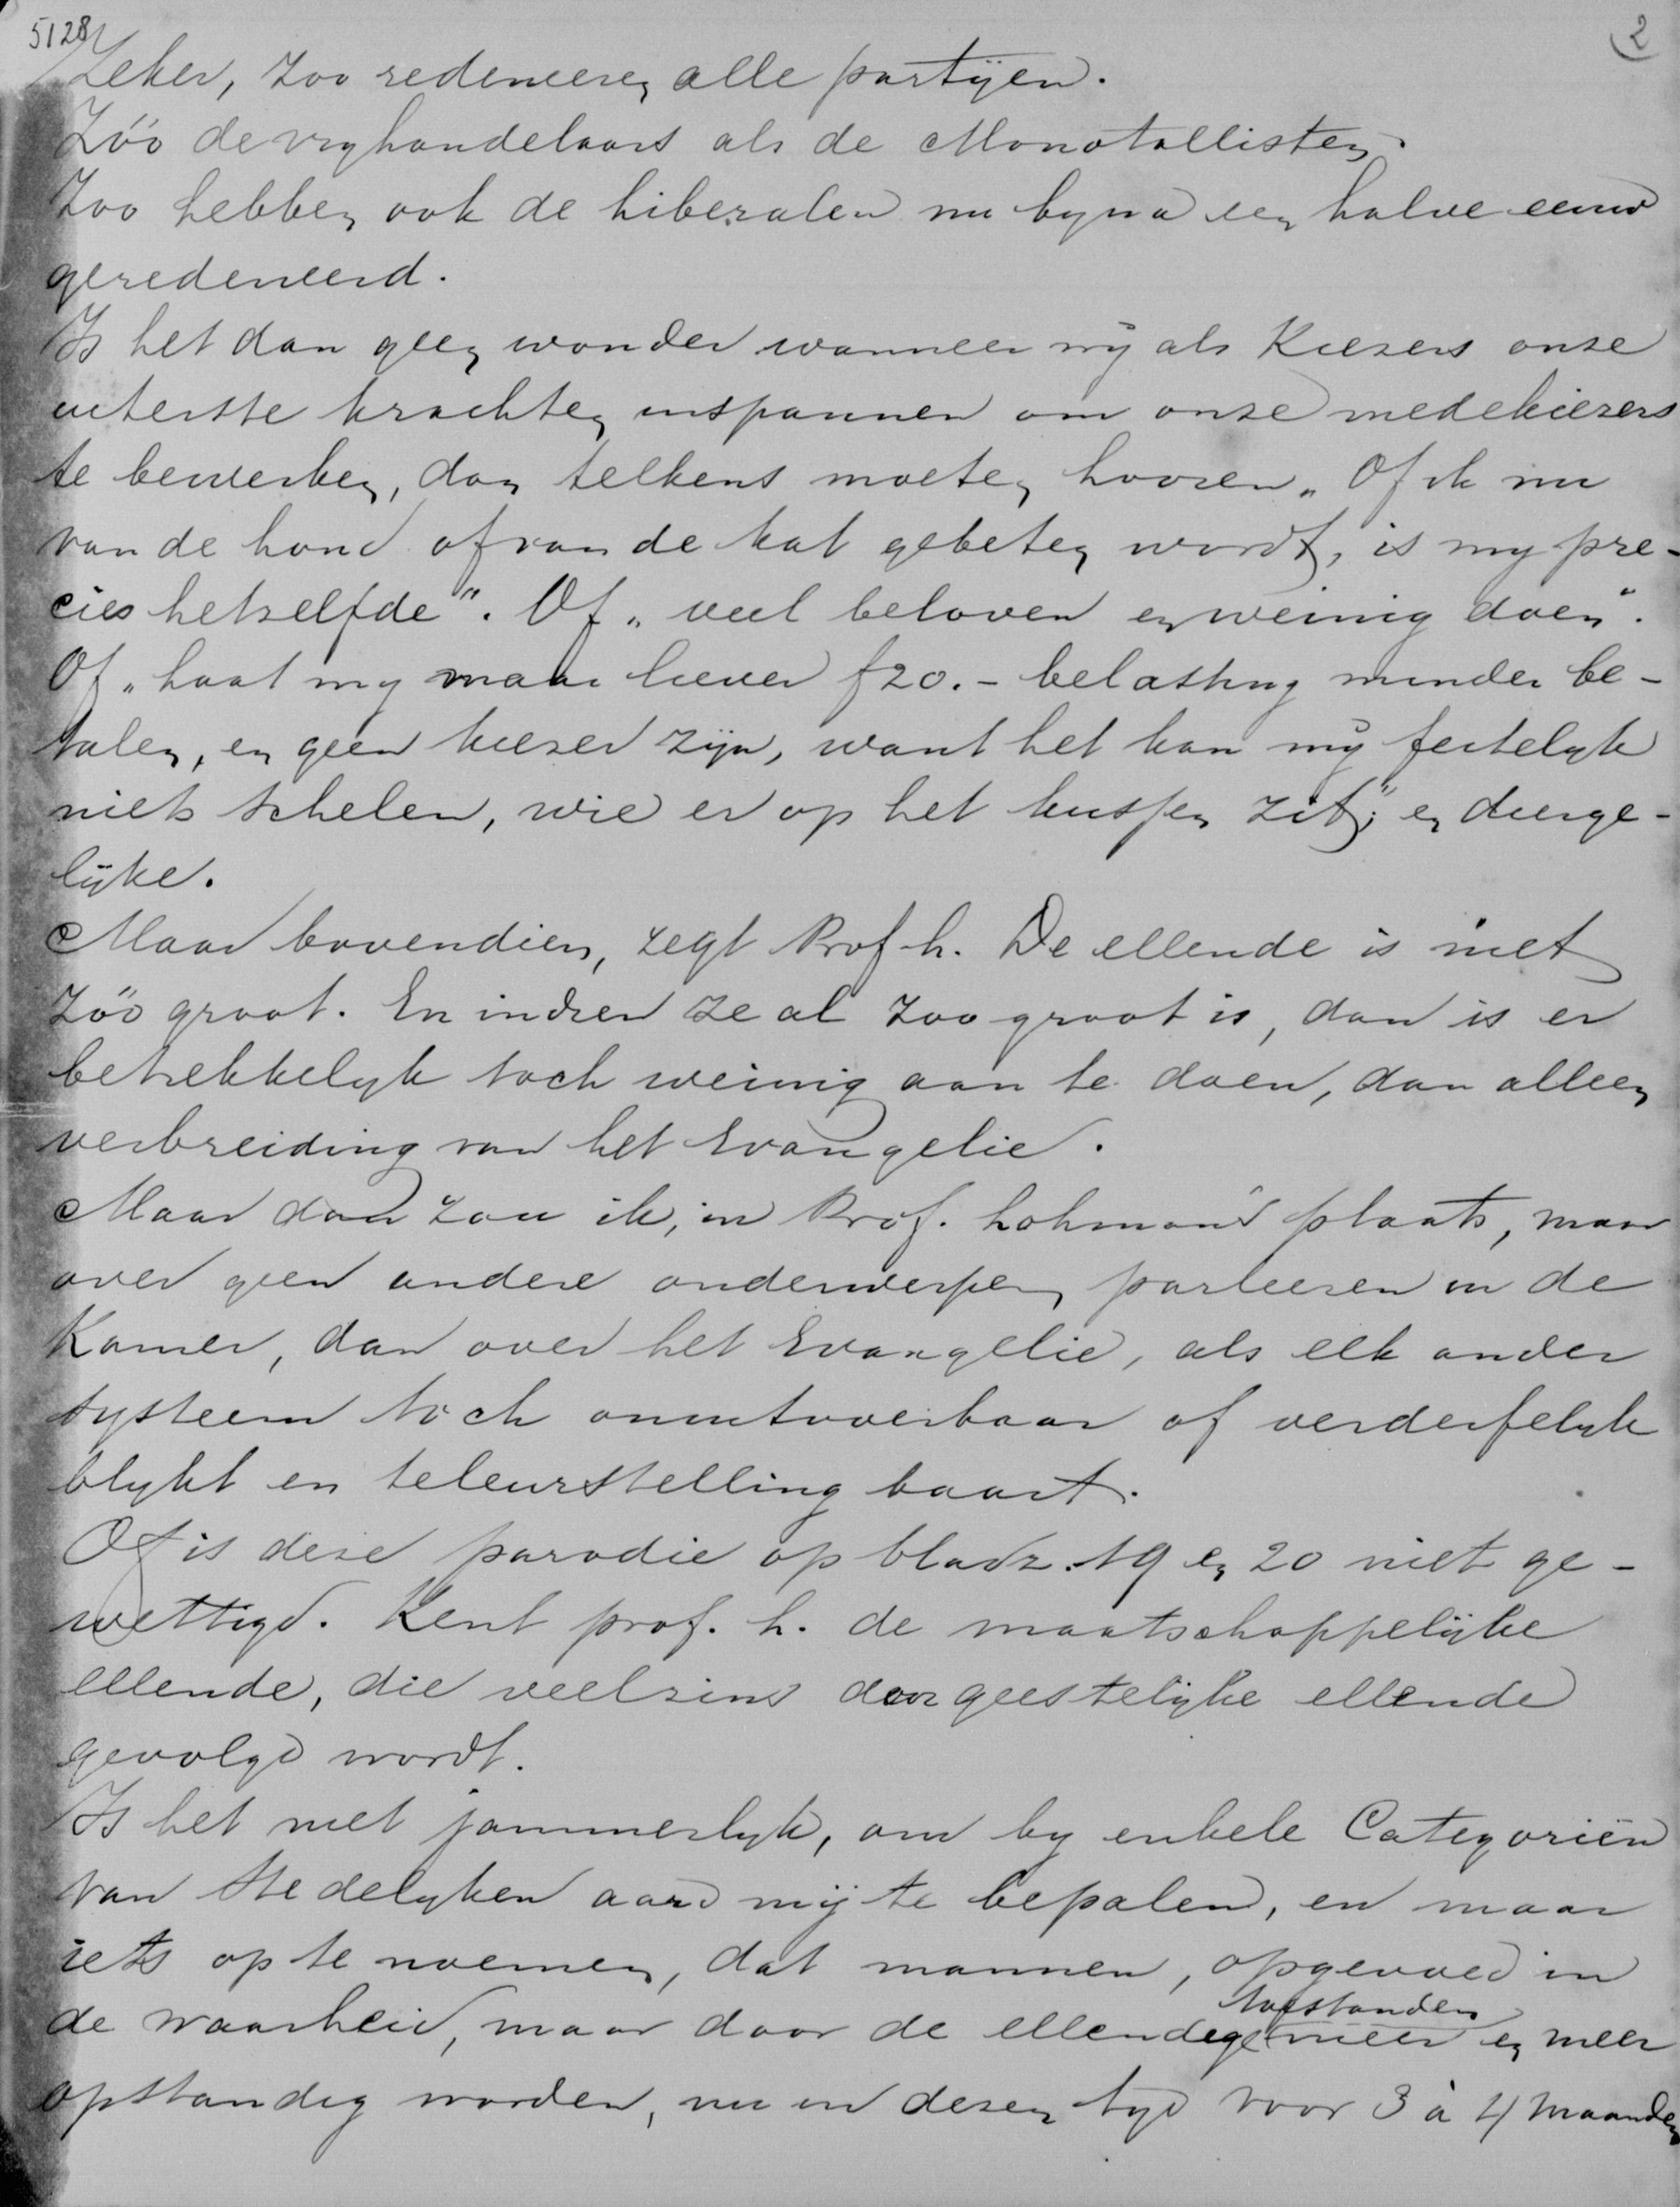 5128
2
Zeker, zoo redeneeren alle partijen.
Zóó de vryhandelaars als de Monotallisten.
Zoo hebben ook de Liberalen nu byna een halve eeuw
geredeneerd.
Is het dan geen wonder wanneer wij als Kiezers onze
uiterste krachten inspannen om onze medekiezers
te bewerken, dan telkens moeten hooren „Of ik nu
van de hond of van de kat gebeten wordt, is my pre-
cies hetzelfde". Of „veel beloven en weinig doen".
Of „Laat my maar liever f20.- belasting minder be-
talen, en geen kiezer zijn, want het kan mij feitelyk
niets schelen, wie er op het kussen zit", en dierge-
lijke.
Maar bovendien, zegt Prof L. De ellende is niet
zóó groot. En indien ze al zoo groot is, dan is er
betrekkelyk toch weinig aan te doen, dan alleen
verbreiding van het Evangelie.
Maar dan zou ik, in Prof. Lohman's plaats, maar
over geen andere onderwerpen parleeren in de
Kamer, dan over het Evangelie, als elk ander
systeem toch onuitvoerbaar of verderfelyk
blykt en teleurstelling baart.
Of is deze parodie op bladz. 19 en 20 niet ge-
wettigd. Kent prof. L. de maatschappelijke
ellende, die veelzins door geestelijke ellende
gevolgd wordt.
Is het niet jammerlyk, om by enkele Categoriën
van stedelyken aard mij te bepalen, en maar
iets op te noemen, dat mannen, opgevoed in
toestanden
de waarheid, maar door de ellendige meer en meer
opstandig worden, nu in dezen tyd voor 3 à 4 maanden